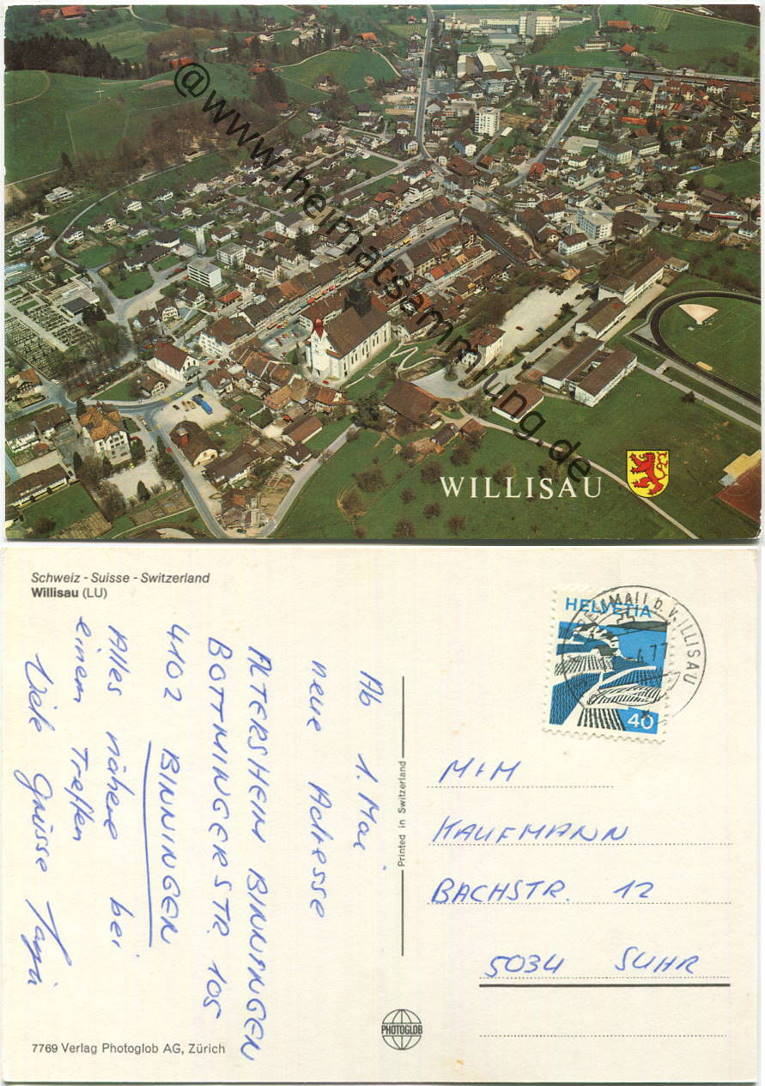 @www.heimatsammlung.de
WILLISAU
Schweiz - Suisse - Switzerland
Willisau (LU)
Ab 1. Mai
neue Adresse
ALTERSHEIM BINNINGEN
BOTTMINGERSTR. 105
4102 BINNINGEN
Alles nähere bei
einem Treffen
Viele Grüsse
Printed in Switzerland
PHOTOGLOB
HELVETIA
40
b. WILLISAU
M+M
KAUFMANN
BACHSTR. 12
5034 SUHR
7769 Verlag Photoglob AG, Zürich